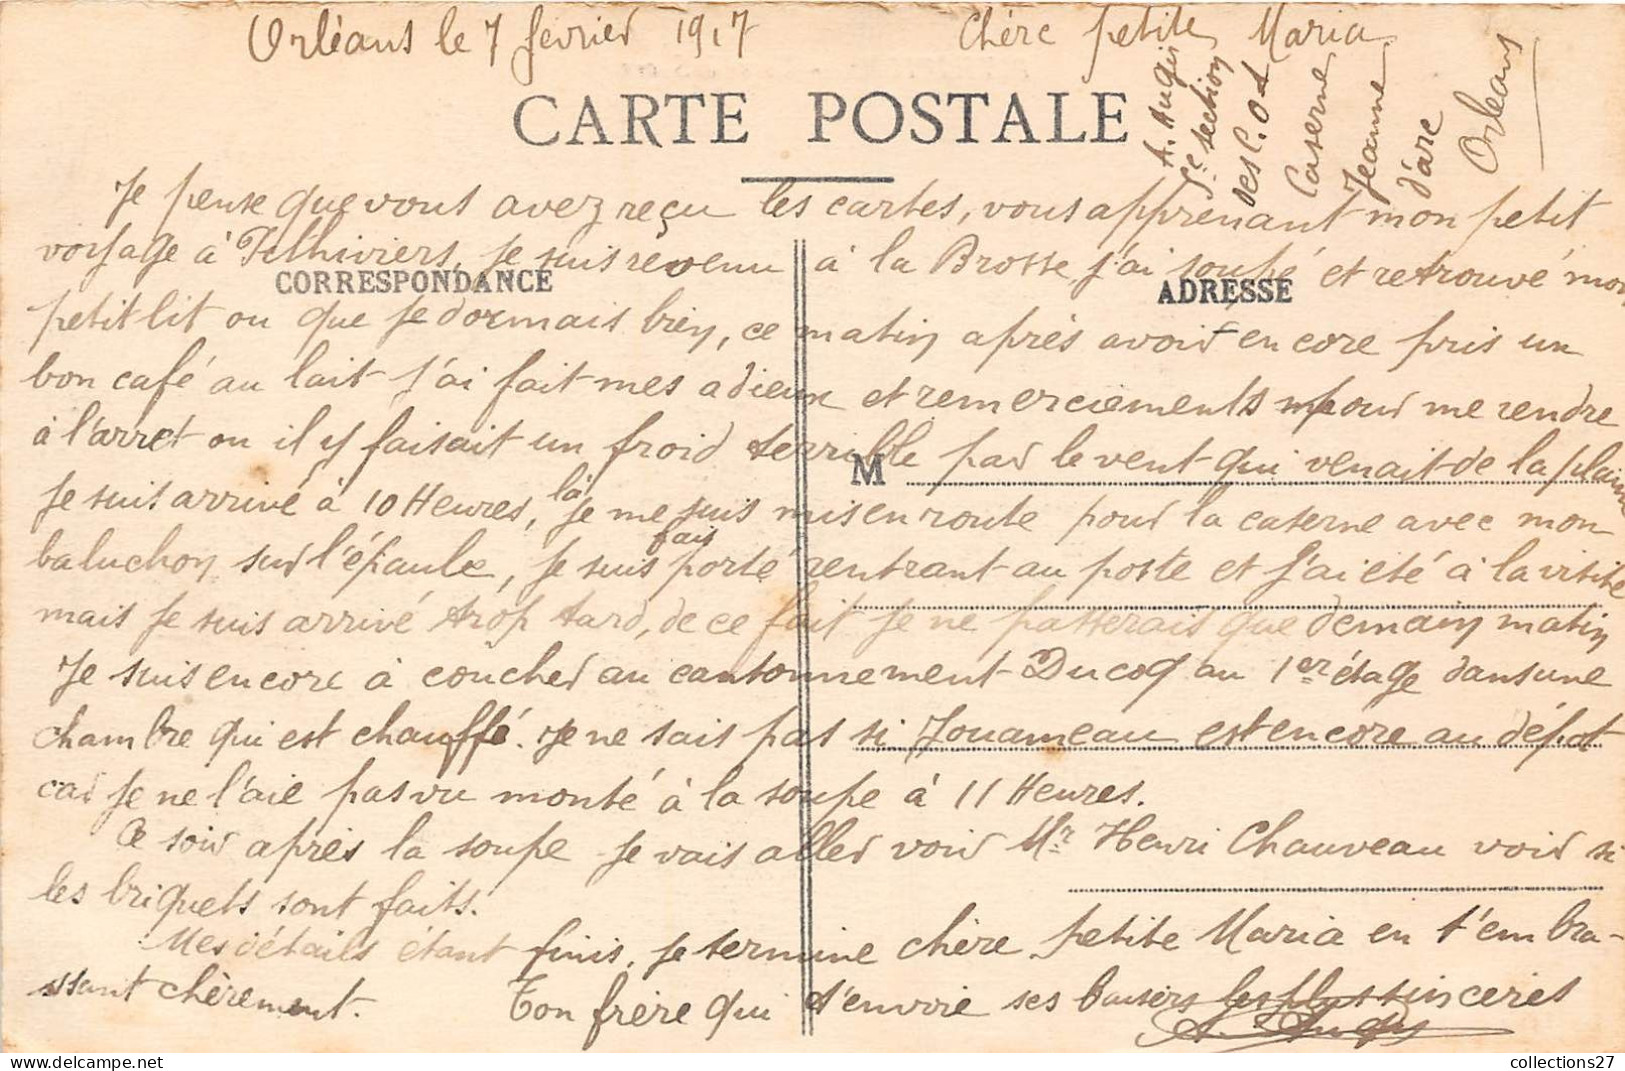 Orléans le 7 février 1917 Chère petite Maria
A. Augis
5e section
des C.O.A
Caserne
Jeanne
d'arc
Orléans
CARTE POSTALE
Je pense que vous avez reçu les cartes, vous apprenant mon petit
voyage à Pithiviers, je suis revenu à la Brosse j'ai soupé et retrouvé mon
CORRESPONDANCE ADRESSE
petit lit ou que je dormais bien, ce matin après avoir encore pris un
bon café au lait j'ai fait mes adieux et remerciements pour me rendre
à l'arret ou il y faisait un froid terrible par le vent qui venait de la plaine
M
je suis arrivé à 10 Heures, là je me suis mis en route pour la caserne avec mon
baluchon sur l'épaule, je suis fais porté rentrant au poste et j'ai été à la visite
mais je suis arrivé trop tard, de ce fait je ne passerais que demain matin
Je suis encore à coucher au cantonnement Ducoq au 1er étage dans une
chambre qui est chauffé. Je ne sais pas si Jouameau est encore au dépot
car je ne l'aie pas vu monté à la soupe à 11 Heures.
Ce soir après la soupe je vais aller voir Mr Henri Chauveau voir si
les briquets sont faits.
Mes détails étant finis, je termine chère petite Maria en t'embra-
ssant chèrement. Ton frère qui t'envoie ses baisers les plus sincères
A. Augis
collections27